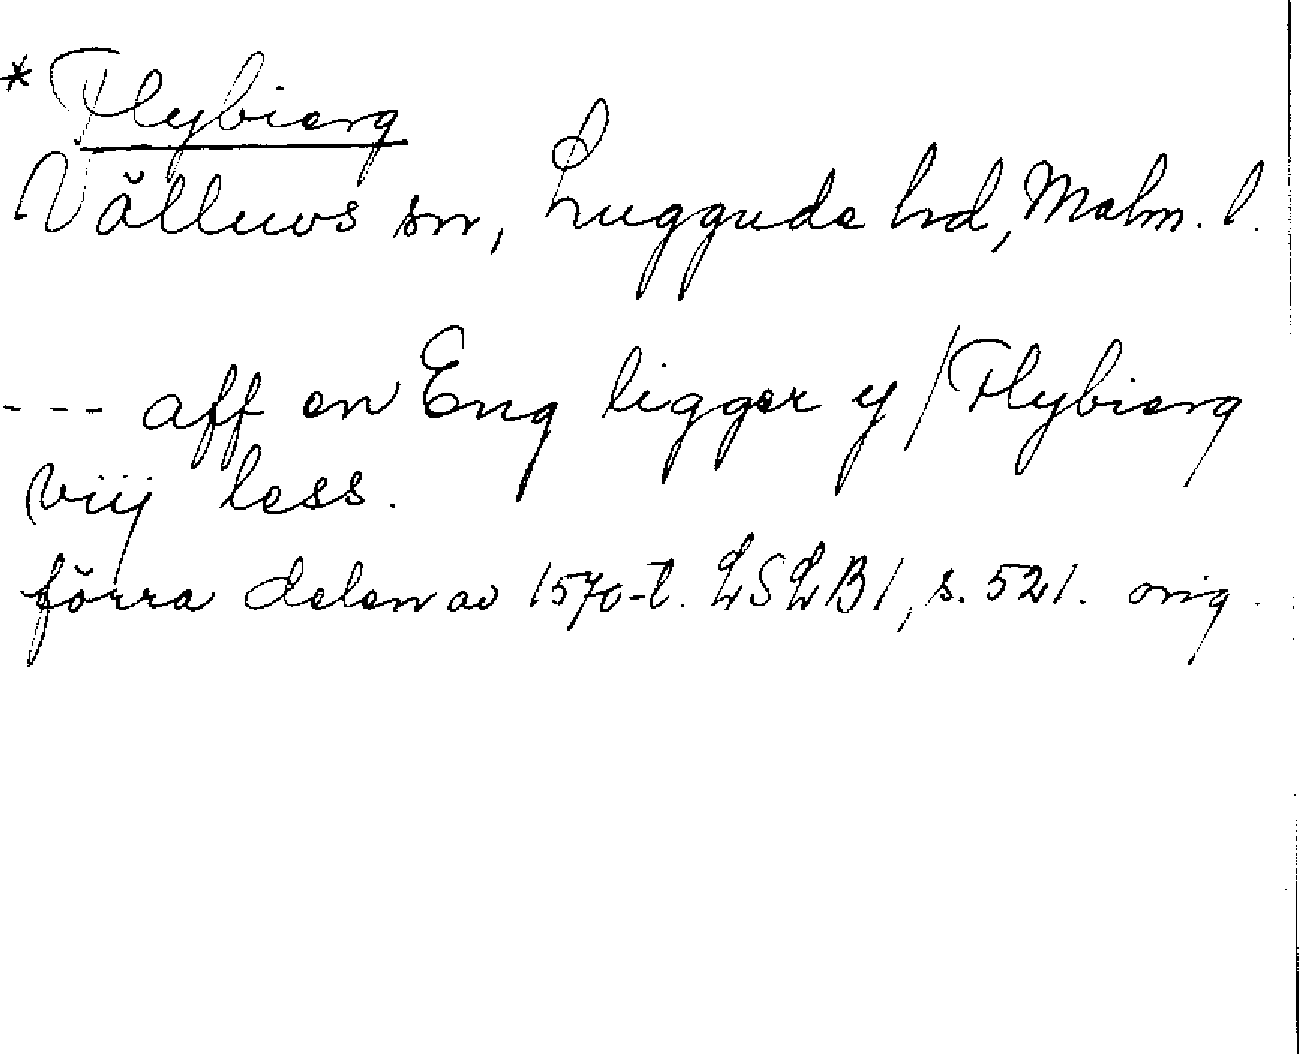 * Flybierg
Välluvs sn, Luggude hd, Malm. l.
--- aff en Eng ligger y / Flybierg
viij less.
förra delen av 1570-t. LSLB1, s. 521. orig.